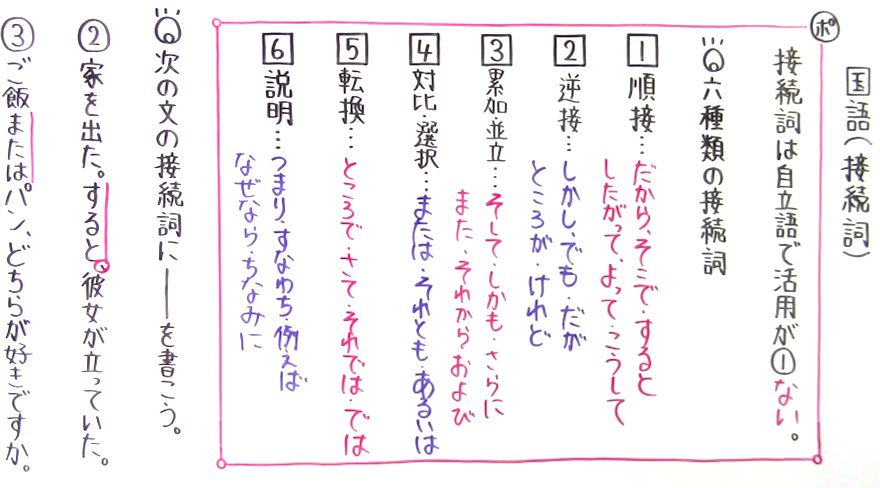 国語(接続詞)
ポ
接続詞は自立語で活用が①ない。
六種類の接続詞
1 順接…だから、そこで・すると
したがって、よって・こうして
2 逆接…しかし、でも・だが
ところが・けれど
3 累加・並立…そして・しかも・さらに
また・それから・および
4 対比・選択…または・それとも・あるいは
5 転換…ところで・さて・それでは・では
6 説明…つまり・すなわち・例えば
なぜなら・ちなみに
次の文の接続詞に――を書こう。
② 家を出た。すると、彼女が立っていた。
③ ご飯またはパン、どちらが好きですか。